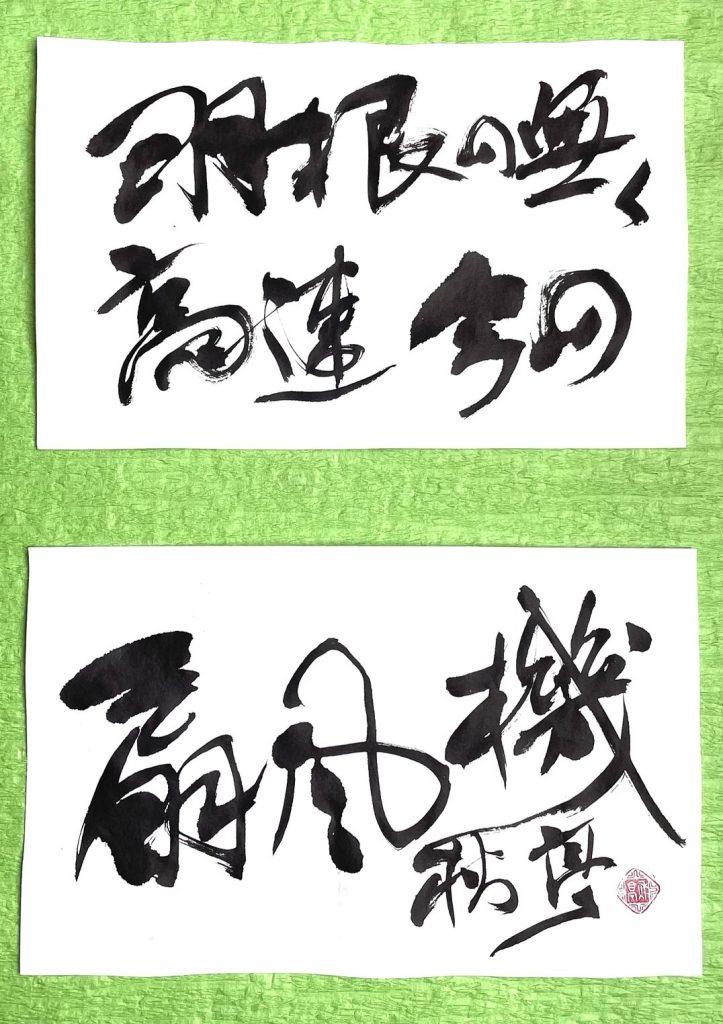 羽根の無く
高速 今の
扇風機
秋亭